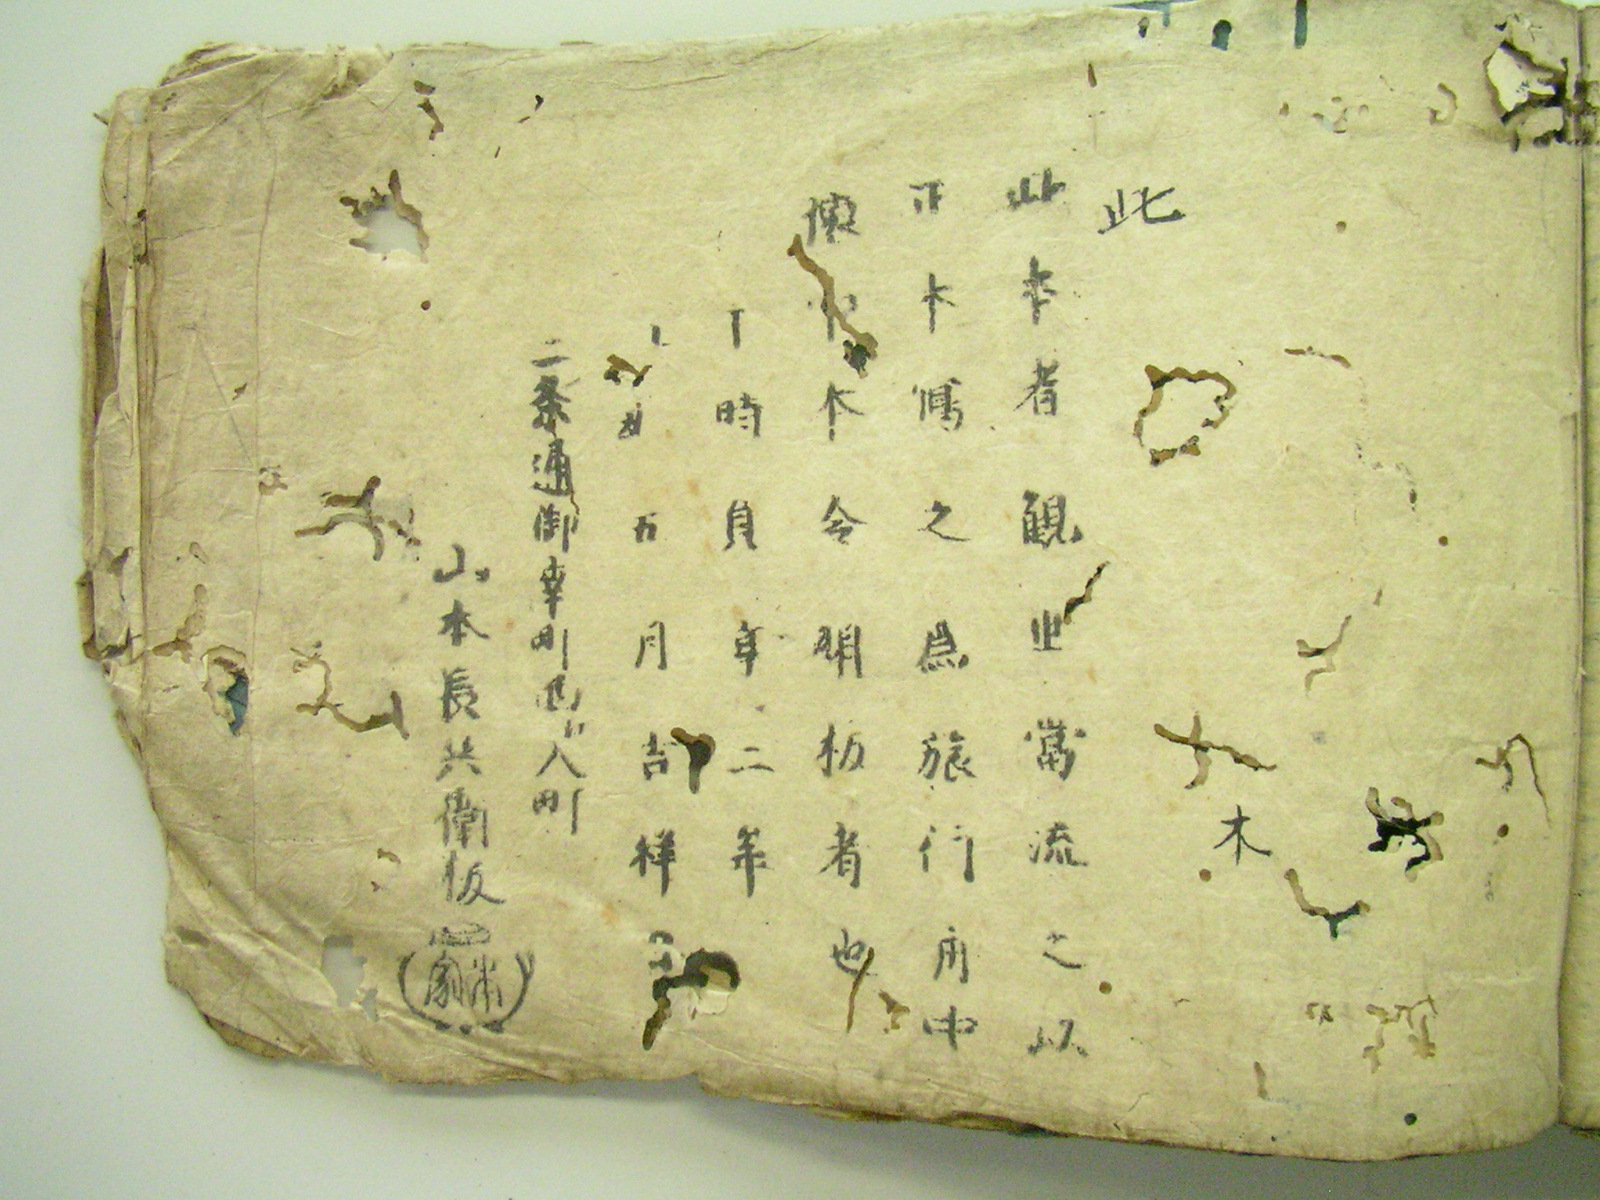 此
木
此本者観世當流之以
正本寫之為旅行用中
本令開板者也
于時貞享二年
丑五月吉祥日
二条通御幸町西へ入町
山本長兵衛板